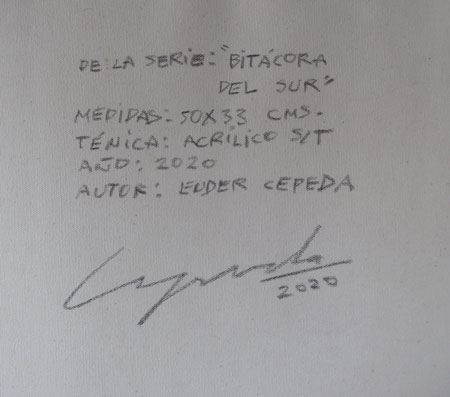 DE LA SERIE: "BITÁCORA
DEL SUR"
MEDIDAS: 50X33 CMS.
TÉNICA: ACRÍLICO S/T
AÑO: 2020
AUTOR: EUDER CEPEDA
Cepeda
2020